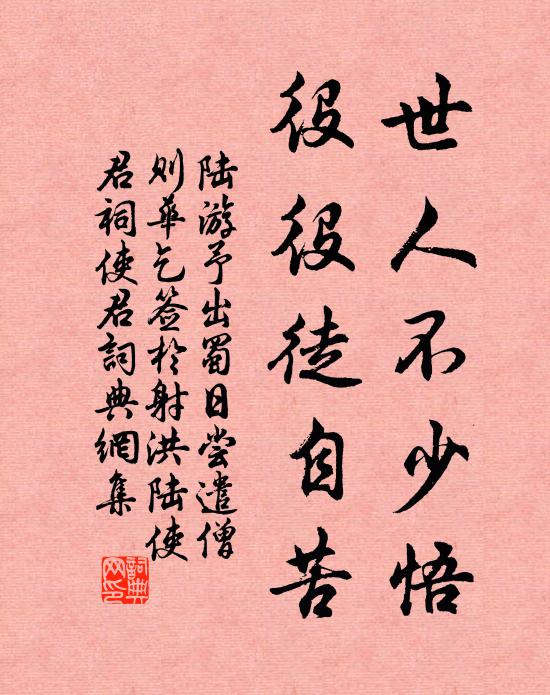 世人不少悟
役役徒自苦
陆游予出蜀日尝遣僧
则華乞签於射洪陆使
君祠使君詞典網集
詞典
网印